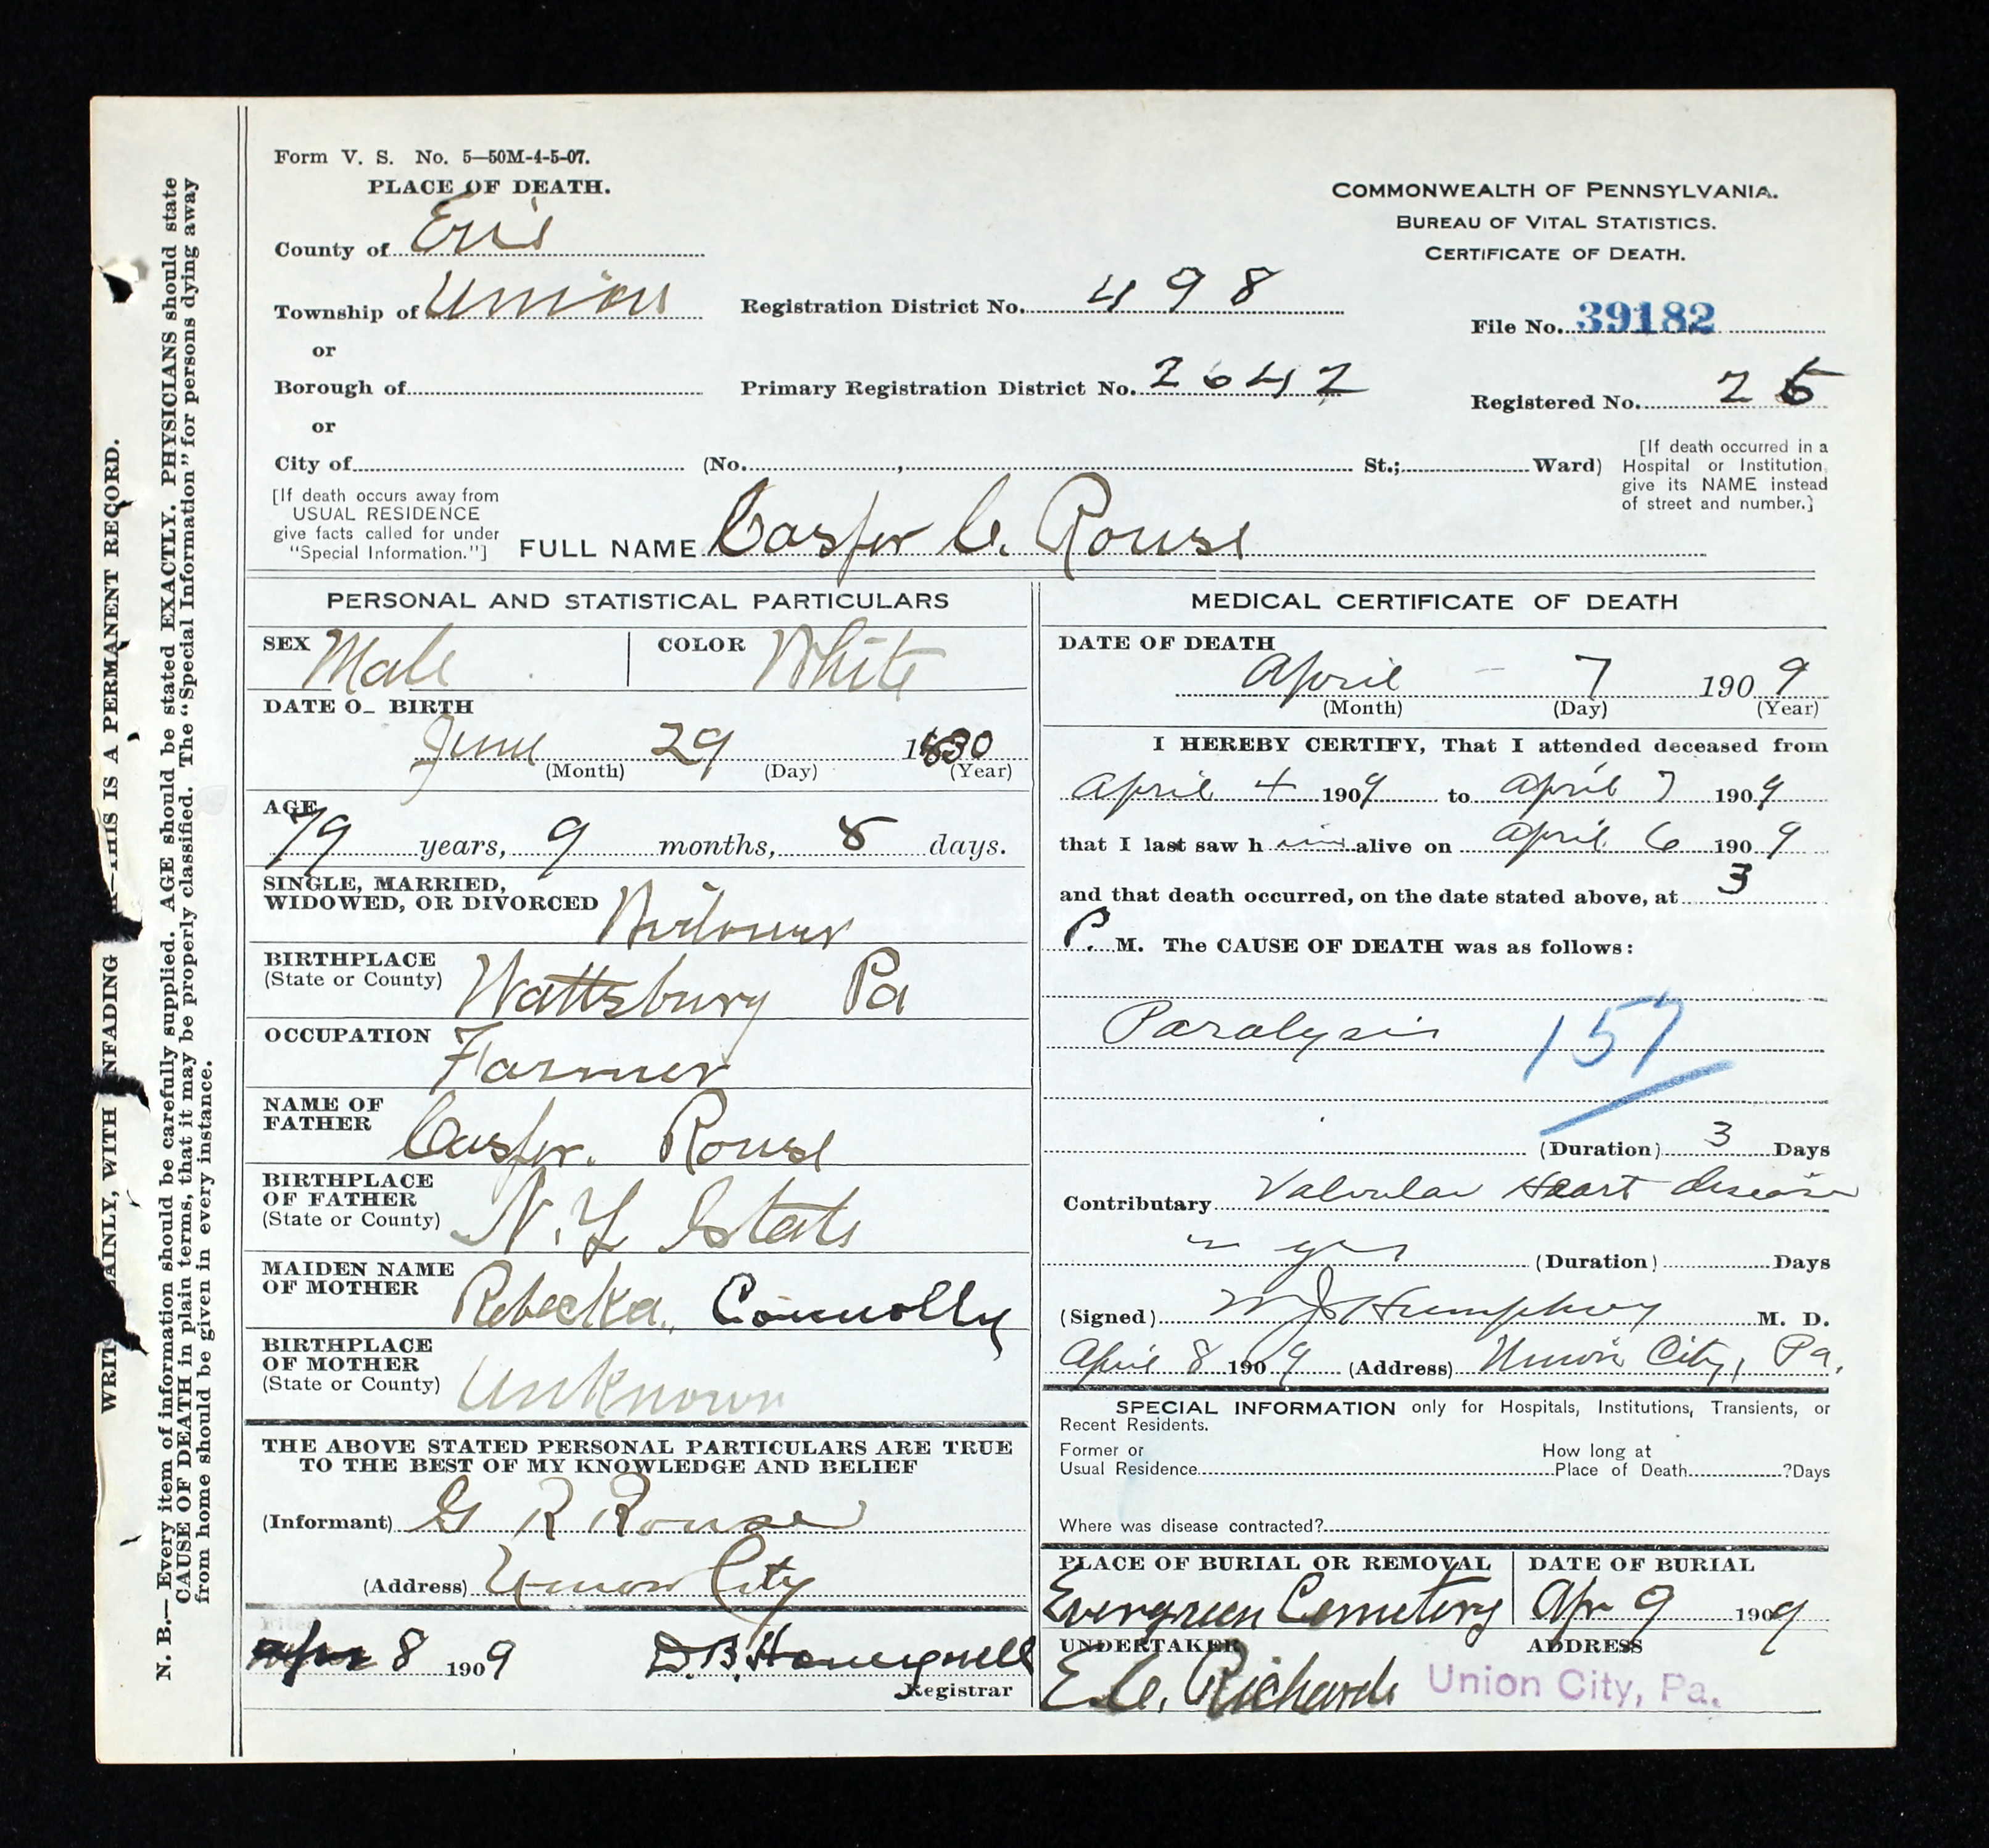 Form V. S. No. 5—50M-4-5-07.
PLACE OF DEATH.
County of Erie
Township of Union
or
Borough of
or
City of (No. , St.; Ward)
COMMONWEALTH OF PENNSYLVANIA.
BUREAU OF VITAL STATISTICS.
CERTIFICATE OF DEATH.
Registration District No. 498
File No. 39182
Primary Registration District No. 2642
Registered No. 25
[If death occurred in a
Hospital or Institution,
give its NAME instead
of street and number.]
[If death occurs away from
USUAL RESIDENCE
give facts called for under
"Special Information."]
FULL NAME Casper C. Rouse
PERSONAL AND STATISTICAL PARTICULARS
SEX Male COLOR White
DATE O_ BIRTH
June 29 1830
(Month) (Day) (Year)
AGE
79 years, 9 months, 8 days.
SINGLE, MARRIED,
WIDOWED, OR DIVORCED Widower
BIRTHPLACE
(State or County) Wattsburg Pa
OCCUPATION
Farmer
NAME OF
FATHER Casper. Rouse
BIRTHPLACE
OF FATHER
(State or County) N.Y State
MAIDEN NAME
OF MOTHER Rebecka. Connolly
BIRTHPLACE
OF MOTHER
(State or County) Unknown
THE ABOVE STATED PERSONAL PARTICULARS ARE TRUE
TO THE BEST OF MY KNOWLEDGE AND BELIEF
(Informant) G R Rouse
(Address) Union City
Filed
Apr 8 1909
Registrar
MEDICAL CERTIFICATE OF DEATH
DATE OF DEATH
April - 7 1909
(Month) (Day) (Year)
I HEREBY CERTIFY, That I attended deceased from
April 4 1909 to April 7 1909
that I last saw him alive on April 6 1909
and that death occurred, on the date stated above, at 3
P. M. The CAUSE OF DEATH was as follows:
Paralysis 157
(Duration) 3 Days
Contributary Valvular Heart disease
yrs (Duration) Days
(Signed) W J Humphrey M. D.
April 8 1909 (Address) Union City, Pa.
SPECIAL INFORMATION only for Hospitals, Institutions, Transients, or
Recent Residents.
Former or
Usual Residence
How long at
Place of Death ?Days
Where was disease contracted?
PLACE OF BURIAL OR REMOVAL DATE OF BURIAL
Evergreen Cemetery Apr 9 1909
UNDERTAKER ADDRESS
E. C. Richards Union City, Pa.
AINLY, WITH NFADING THIS IS A PERMANENT RECORD.
N. B.—Every item of information should be carefully supplied. AGE should be stated EXACTLY. PHYSICIANS should state
CAUSE OF DEATH in plain terms, that it may be properly classified. The "Special Information" for persons dying away
from home should be given in every instance.